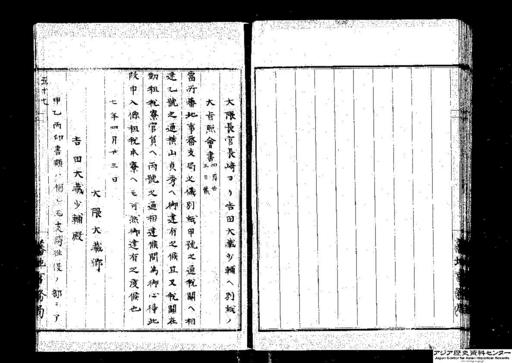 大隈長官長崎ヨリ吉田大蔵少輔ヘ別紙ノ
大旨照會書
當所蕃地事務支局之儀別紙甲号之通税関ヘ相
達乙號之通横山貞秀ヘ御達有之候且又税関在
勤租税寮官員ヘ丙號之通相達候間為御心得此
段申入候租税本寮ヘモ可然御達有之度候也
七年四月廿三日
大隈大蔵卿
吉田大蔵少輔殿
甲乙丙印書類ハ
五十七
蕃地事務局
アジア歴史資料センター
Japan Center for Asian Historical Records